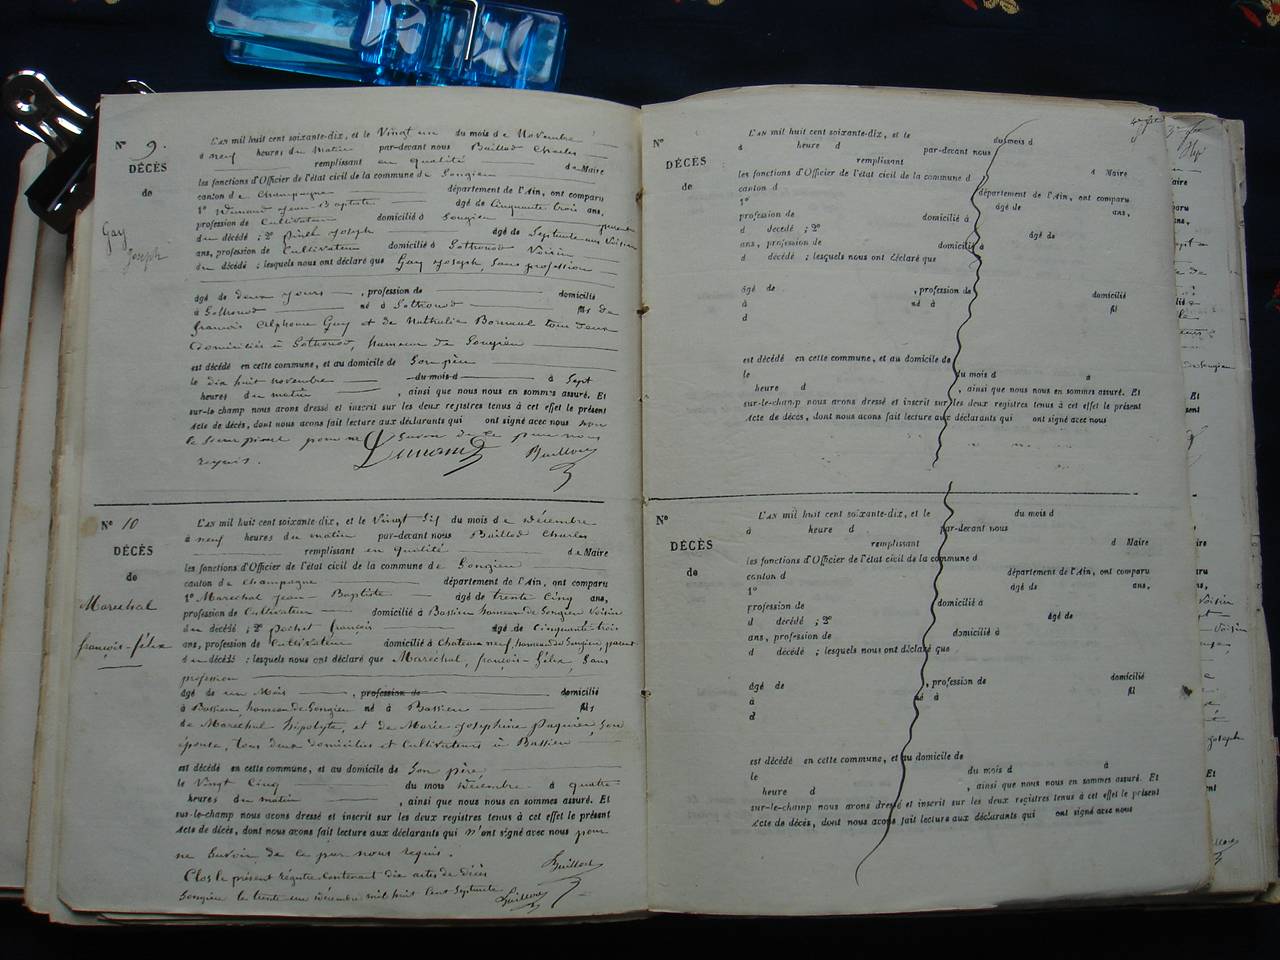 N° 9.
DÉCÈS
de
Gay
Joseph
L'AN mil huit cent soixante-dix, et le Vingt un du mois de Novembre
à neuf heures du matin par-devant nous Baillod Charles
remplissant en qualité de Maire
les fonctions d'Officier de l'état civil de la commune de Songieu
canton de Champagne département de l'Ain, ont comparu
1° Jean Baptiste âgé de Cinquante trois ans,
profession de Cultivateur domicilié à Songieu parent
du décédé ; 2° Joseph âgé de Septante un Voisin
ans, profession de Cultivateur domicilié à Sothonod Voisin
du décédé ; lesquels nous ont déclaré que Gay Joseph, Sans profession
âgé de deux jours , profession de domicilié
à Sothonod né à Sothonod fils de
françois Alphonse Gay et de Nathalie tous deux
domiciliés à Sothonod, hameau de Songieu
est décédé en cette commune, et au domicile de Son père
le dix huit novembre du mois d à Sept
heures du matin , ainsi que nous nous en sommes assuré. Et
sur-le-champ nous avons dressé et inscrit sur les deux registres tenus à cet effet le présent
Acte de décès, dont nous avons fait lecture aux déclarants qui ont signé avec nous non
le Second pour ne Savoir de ce par nous
requis. Baillod
N° 10
DÉCÈS
de
Maréchal
françois-félix
L'AN mil huit cent soixante-dix, et le Vingt Six du mois de Décembre
à neuf heures du matin par-devant nous Baillod Charles
remplissant en qualité de Maire
les fonctions d'Officier de l'état civil de la commune de Songieu
canton de Champagne département de l'Ain, ont comparu
1° Maréchal Jean Baptiste âgé de trente Cinq ans,
profession de Cultivateur domicilié à Bassieu hameau de Songieu Voisin
du décédé ; 2° Pochet françois âgé de Cinquante-trois
ans, profession de Cultivateur domicilié à Chateauneuf, hameau de Songieu, parent
du décédé ; lesquels nous ont déclaré que Maréchal, françois-félix, Sans
profession
âgé de un Mois , profession de domicilié
à Bassieu hameau de Songieu né à Bassieu fils
de Maréchal hipolyte, et de Marie Josephine Paquier, Son
épouse, tous deux domiciliés et Cultivateurs à Bassieu
est décédé en cette commune, et au domicile de Son père,
le Vingt Cinq du mois Décembre à quatre
heures du matin , ainsi que nous nous en sommes assuré. Et
sur-le-champ nous avons dressé et inscrit sur les deux registres tenus à cet effet le présent
Acte de décès, dont nous avons fait lecture aux déclarants qui n'ont signé avec nous pour
ne Savoir de ce par nous requis.
Baillod
Clos le présent régistre contenant dix actes de décès
Songieu le trente un Décembre mil huit Cent Septante Baillod
N°
DÉCÈS
de
L'AN mil huit cent soixante-dix, et le du mois d
à heure d par-devant nous
remplissant d Maire
les fonctions d'Officier de l'état civil de la commune d
canton d département de l'Ain, ont comparu
1° âgé de ans,
profession de domicilié à
d décédé ; 2° âgé de
ans, profession de domicilié à
d décédé ; lesquels nous ont déclaré que
âgé de , profession de domicilié
à né à fil
d
est décédé en cette commune, et au domicile de
le du mois d à
heure d , ainsi que nous nous en sommes assuré. Et
sur-le-champ nous avons dressé et inscrit sur les deux registres tenus à cet effet le présent
Acte de décès, dont nous avons fait lecture aux déclarants qui ont signé avec nous
N°
DÉCÈS
de
L'AN mil huit cent soixante-dix, et le du mois d
à heure d par-devant nous
remplissant d Maire
les fonctions d'Officier de l'état civil de la commune d
canton d département de l'Ain, ont comparu
1° âgé de ans,
profession de domicilié à
d décédé ; 2° âgé de
ans, profession de domicilié à
d décédé ; lesquels nous ont déclaré que
âgé de , profession de domicilié
à né à fil
d
est décédé en cette commune, et au domicile de
le du mois d à
heure d , ainsi que nous nous en sommes assuré. Et
sur-le-champ nous avons dressé et inscrit sur les deux registres tenus à cet effet le présent
Acte de décès, dont nous avons fait lecture aux déclarants qui ont signé avec nous